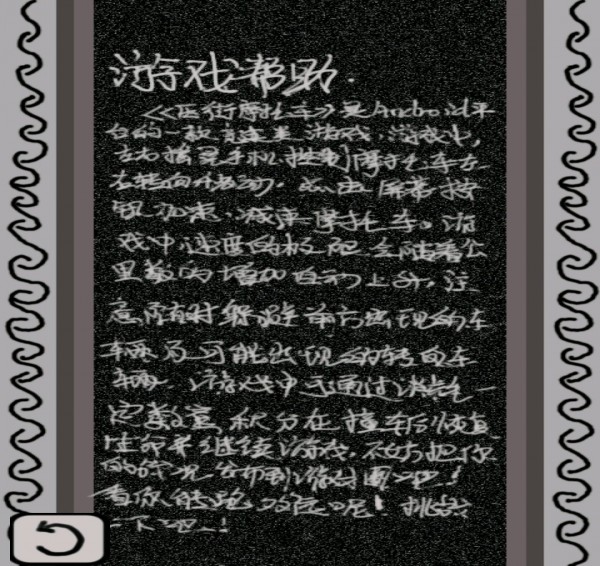 游戏帮助.
《压街摩托车》是Android平
台的一款竞速类游戏,游戏中,
左右摇晃手机控制摩托车左
右转向移动。点击屏幕按
钮加速、减速摩托车。游
戏中速度的极限会随着公
里数的增加自动上升。注
意随时躲避前方出现的车
辆及可能出现的转向车
辆。游戏中还通过消耗一
定数量积分在撞车后恢复
生命并继续游戏。不妨把你
的战况发布到游戏圈吧!
看你能跑多远呢!挑战
一下吧!